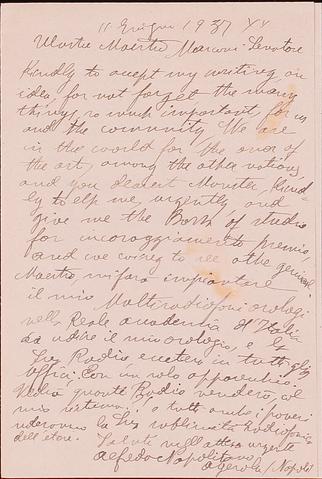 11 Giugno 1937 XV
Illustre Maestro Marconi - Senatore
Kindly to acept my writing, an
idea for not forget the many
things, so much important, for us
and the comunity We are
in the world for the onor of
the art, among the other nations,
and you dearest Monsler, kind-
ly to elp me, urgently and
give me the Borsa of studio
for incoraggiamento premio,
and we to see other general
Maestro, mi fara impiantare
il mio Multiradiofoni orologi
nella Reale academia d'Italia
da udire il mio orologio, e la
Sua Radio, in tutti gli
uffici. Con un solo apparechio.
Vedrà quanti Radio venderò, col
mio sistema, e tutti anche i poveri
udiranno la Sua sublimità Radiofonia
dell'etere. Saluti attesa urgente
Alfredo Napolitano
Agerola / Napoli